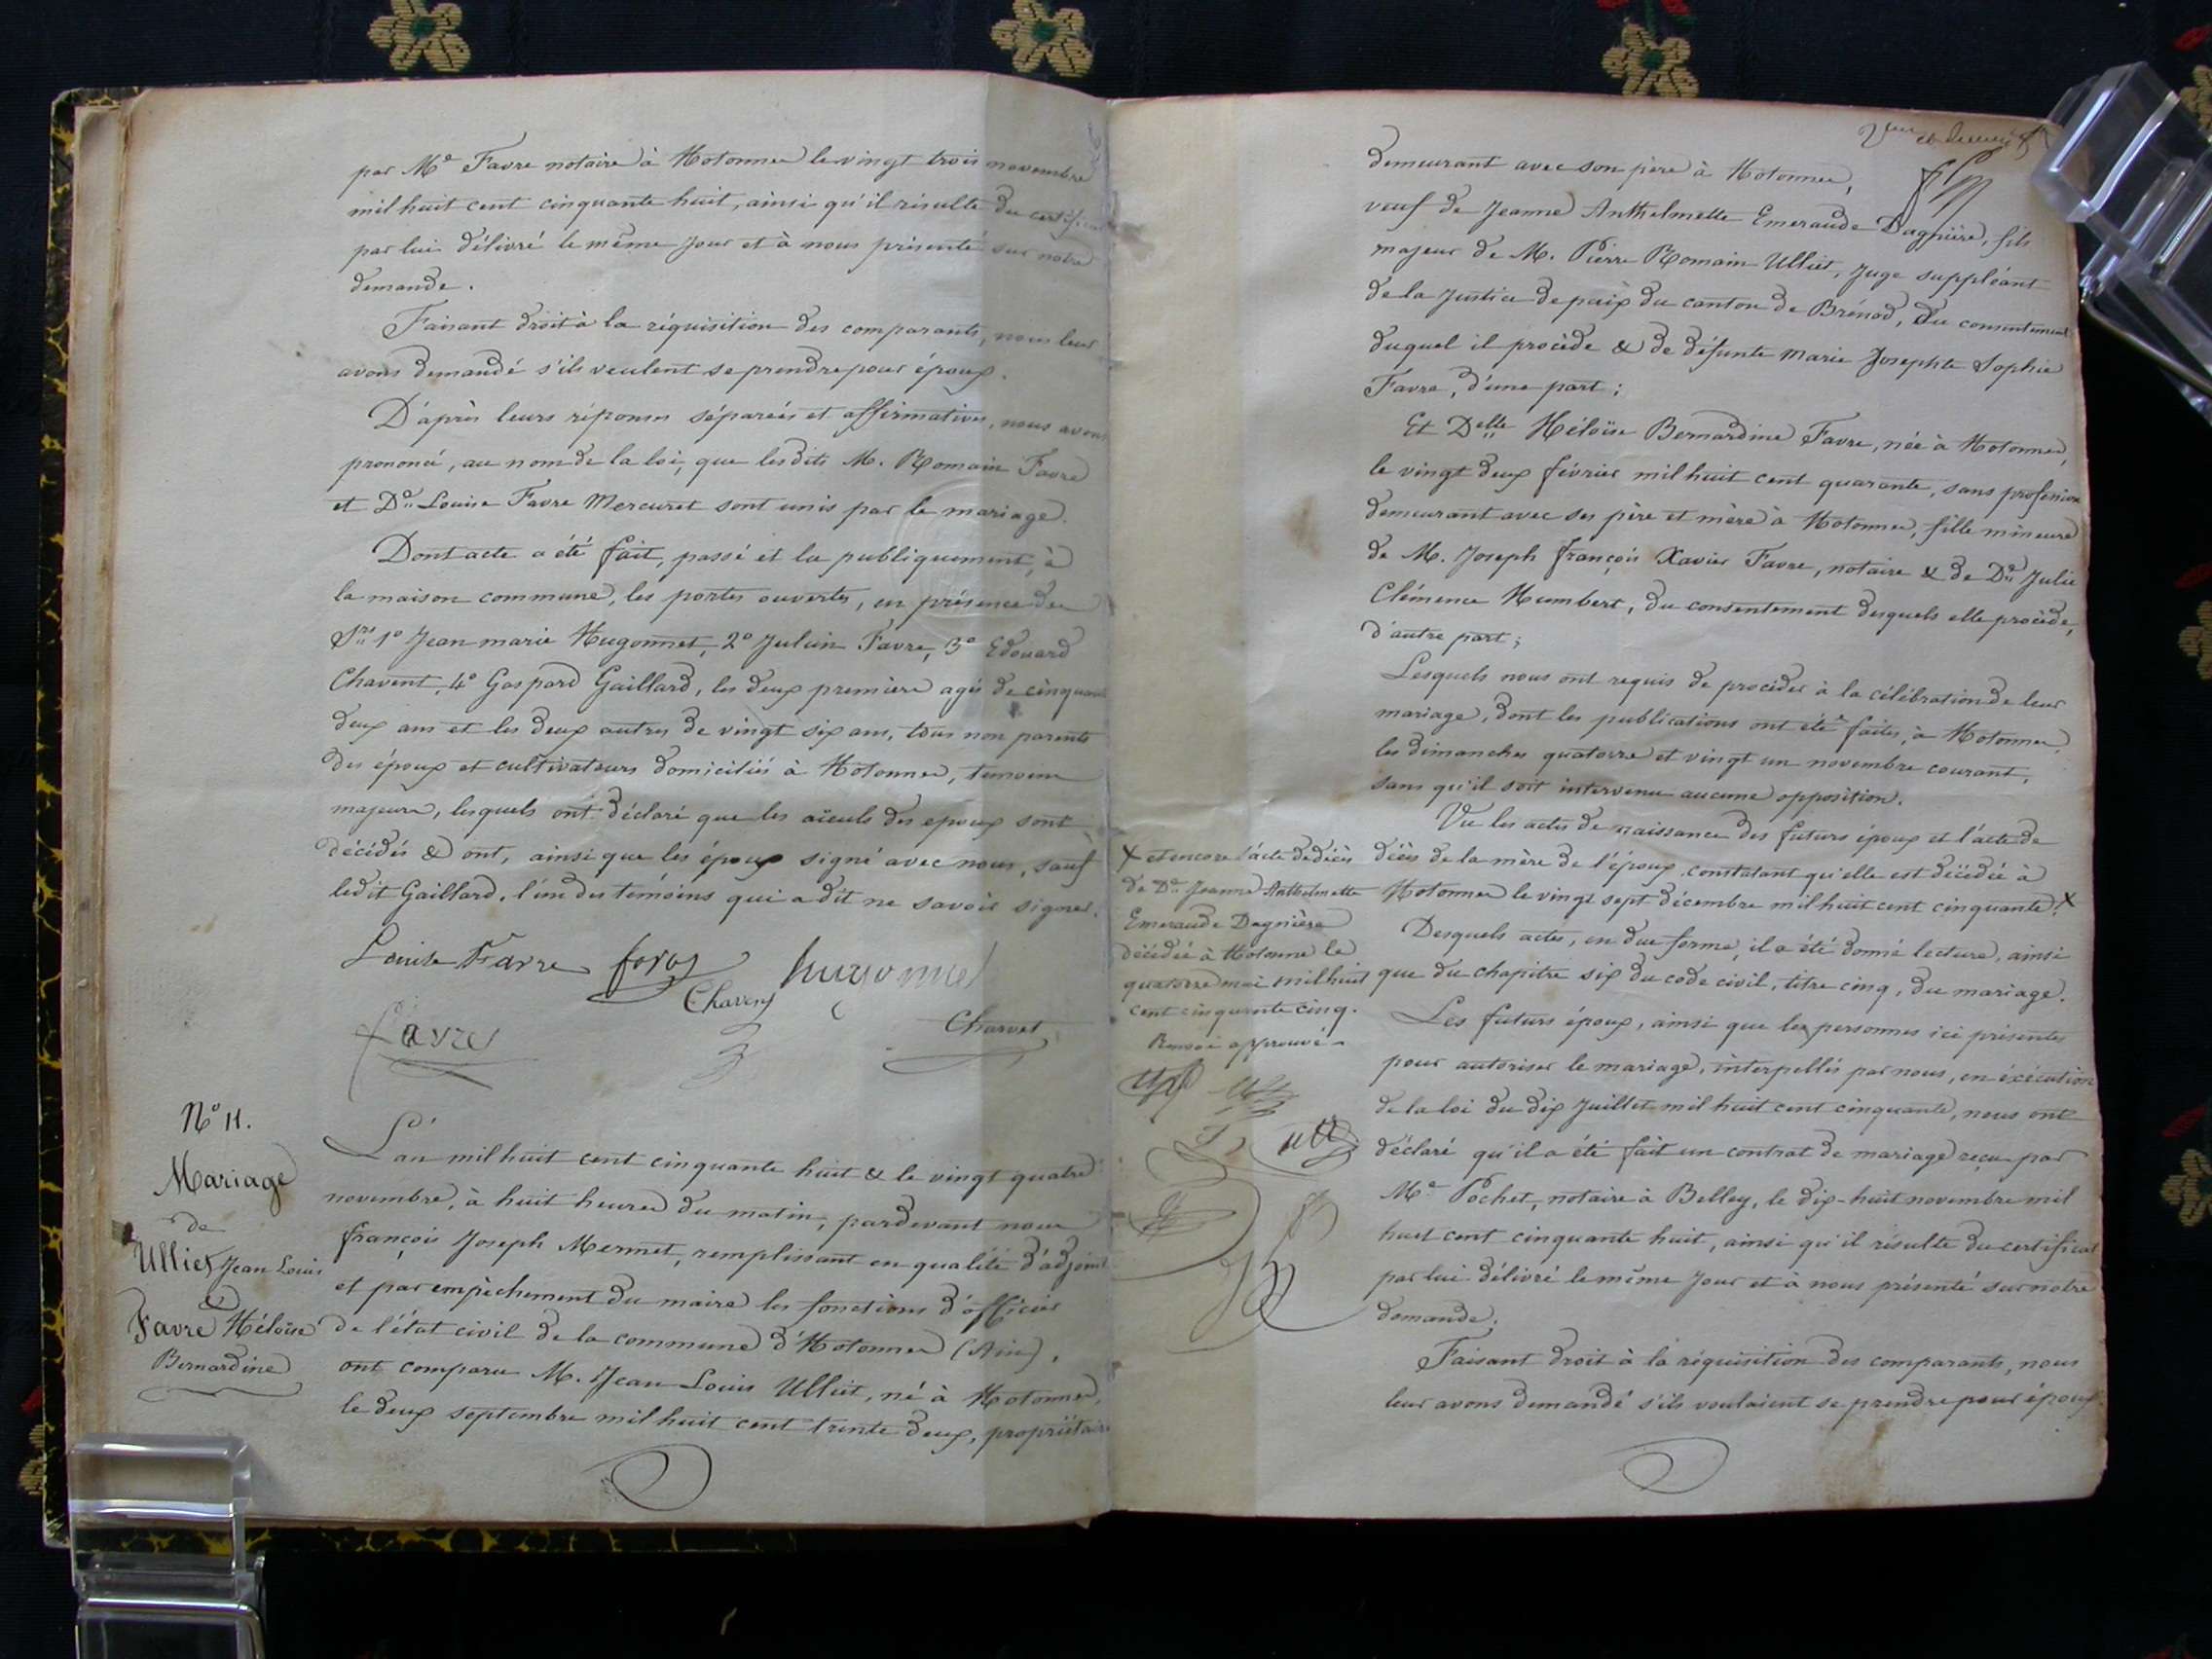 par Me Favre notaire à Hotonnes le vingt trois novembre
mil huit cent cinquante huit, ainsi qu'il résulte du certificat
par lui délivré le même jour et à nous présenté sur notre
demande.
Faisant droit à la réquisition des comparants, nous leur
avons demandé s'ils veulent se prendre pour époux.
D'après leurs réponses séparées et affirmatives, nous avons
prononcé, au nom de la loi, que lesdits M. Romain Favre
et De Louise Favre Mercuret sont unis par le mariage.
Dont acte a été fait, passé et lu publiquement, à
la maison commune, les portes ouvertes, en présence des
Srs 1o Jean marie Hugonnet, 2o Julien Favre, 3o Edouard
Chavent, 4o Gaspard Gaillard, les deux premiers agés de cinquante
deux ans et les deux autres de vingt six ans, tous non parents
des époux et cultivateurs domiciliés à Hotonnes, temoins
majeurs, lesquels ont déclaré que les aïeuls des epoux sont
décédés & ont, ainsi que les époux signé avec nous, sauf
ledit Gaillard, l'un des temoins qui a dit ne savoir signer.
Louise Favre favre hugonnet
Chavent
favre
Charvet
No 11.
Mariage
de
Ulliet Jean Louis
&
Favre Héloïse
Bernardine
L'an mil huit cent cinquante huit & le vingt quatre
novembre, à huit heures du matin, pardevant nous
françois Joseph Mermet, remplissant en qualité d'adjoint
et par empêchement du maire les fonctions d'officier
de l'état civil de la commune d'Hotonnes (Ain),
ont comparu M. Jean Louis Ulliet, né à Hotonnes,
le deux septembre mil huit cent trente deux, propriétaire
demeurant avec son père à Hotonnes,
veuf de Jeanne Anthelmette Emeraude Dagnière, fils
majeur de M. Pierre Romain Ulliet, juge suppléant
de la justice de paix du canton de Brénod, du consentement
duquel il procède & de défunte Marie Josephte Sophie
Favre, d'une part;
Et Delle Héloïse Bernardine Favre, née à Hotonnes,
le vingt deux février mil huit cent quarante, sans profession
demeurant avec ses père et mère à Hotonnes, fille mineure
de M. Joseph françois Xavier Favre, notaire & de De Julie
Clémence Humbert, du consentement desquels elle procède,
d'autre part;
Lesquels nous ont requis de procéder à la célébration de leur
mariage, dont les publications ont été faites, à Hotonnes,
les dimanches quatorze et vingt un novembre courant,
sans qu'il soit intervenu aucune opposition.
Vu les actes de naissance des futurs époux et l'acte de
décès de la mère de l'époux constatant qu'elle est décédée à
Hotonnes le vingt sept décembre mil huit cent cinquante. X
X et encore l'acte de décès
de De Jeanne Anthelmette
Emeraude Dagnière
décédée à Hotonne le
quatorze mai mil huit
cent cinquante cinq.
Renvoi approuvé
Desquels actes, en due forme, il a été donné lecture, ainsi
que du chapitre six du code civil, titre cinq, du mariage.
Les futurs époux, ainsi que les personnes ici présentes
pour autoriser le mariage, interpellés par nous, en éxécution
de la loi du dix Juillet mil huit cent cinquante, nous ont
déclaré qu'il a été fait un contrat de mariage reçu par
Me Pochet, notaire à Belley, le dix-huit novembre mil
huit cent cinquante huit, ainsi qu'il résulte du certificat
par lui délivré le même jour et à nous présenté sur notre
demande.
Faisant droit à la réquisition des comparants, nous
leur avons demandé s'ils voulaient se prendre pour époux.